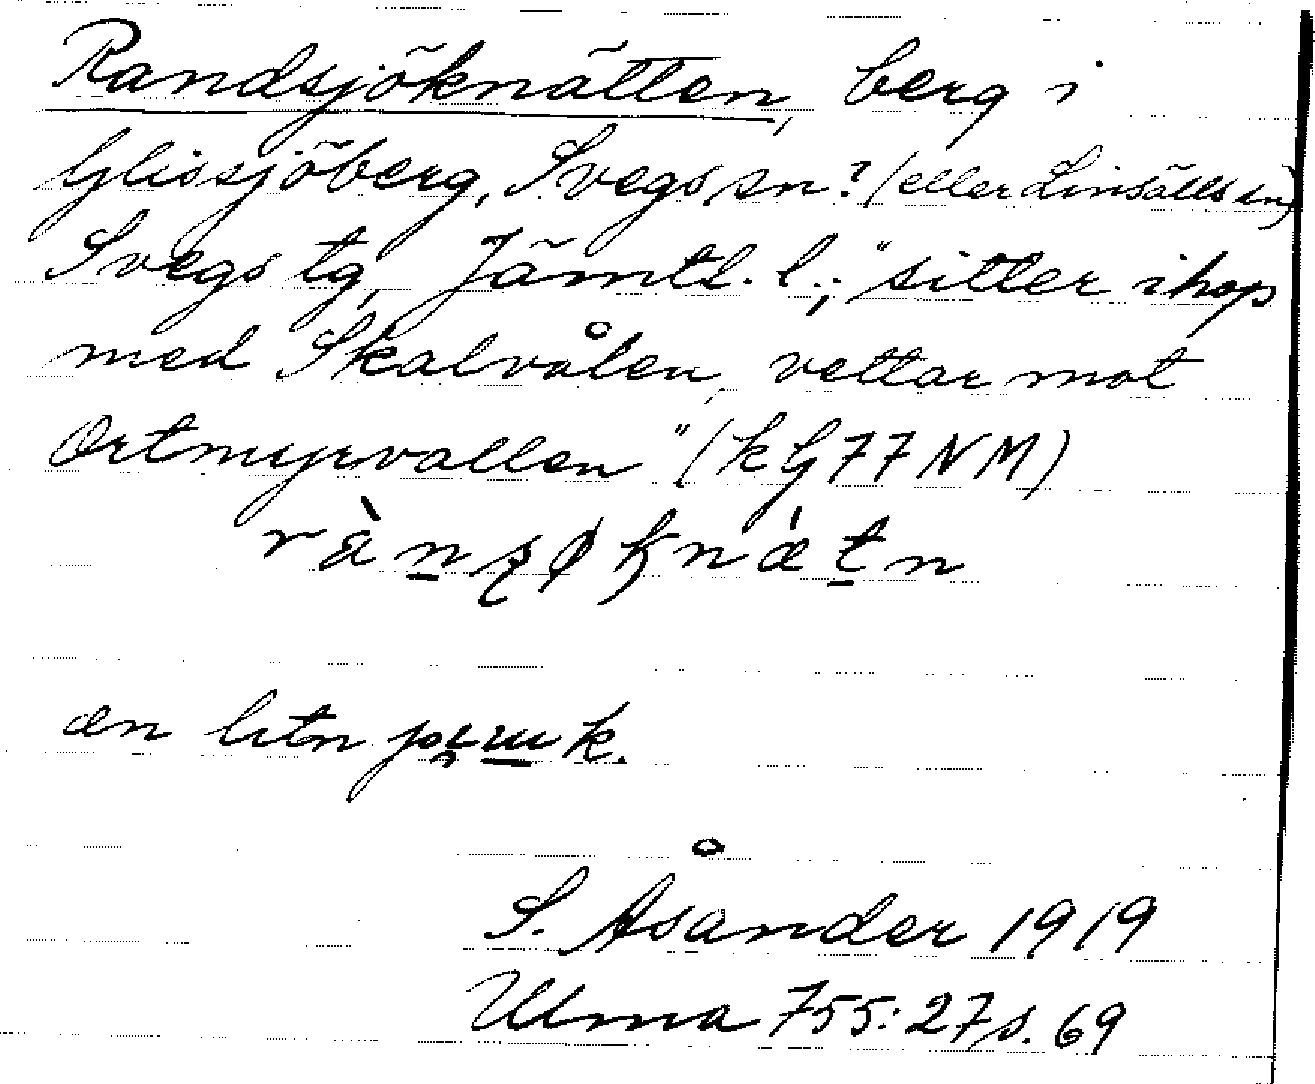 Randsjöknätten, berg i
Glissjöberg, Svegs sn? (eller Linsälls sn)
Svegs tg, Jämtl. l.; "sitter ihop
med Skalvålen, vettar mot
Ortmyrvallen" (kG77NM)
en litn
S. Åsander 1919
Ulma 755:27 s. 69